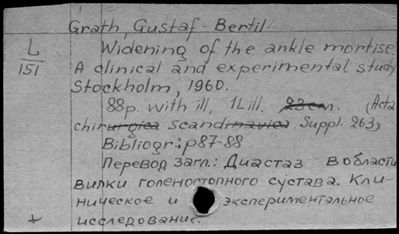 Grath, Gustaf-Bertil
L
151
Widening of the ankle mortise.
A clinical and experimental study
Stockholm, 1960.
88p. with ill, 1L ill. 23см. (Acta
chirurgica scandinavica. Suppl. 263)
Bibliogr.: p87-88
Перевод загл.: Диастаз в области
вилки голеностопного сустава. Кли-
ническое и экспериментальное
исследование.